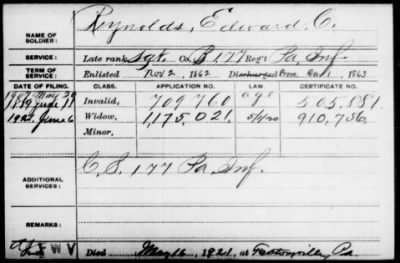 NAME OF SOLDIER: Reynolds, Edward C.
SERVICE: Late rank, Sgt. Co. S 177 Reg't Pa. Inf.
TERM OF SERVICE: Enlisted Nov 2, 1862 Discharged 1863
DATE OF FILING. CLASS. APPLICATION NO. LAW. CERTIFICATE NO.
May 29
1889 June 11 Invalid, 709.760 age 505.881.
1921. June 6 Widow, 1,175.021. 5/1/20 910,756.
Minor,
ADDITIONAL SERVICES: C. S. 177 Pa. Inf.
REMARKS:
W V Died May 16, 1921, at Pa